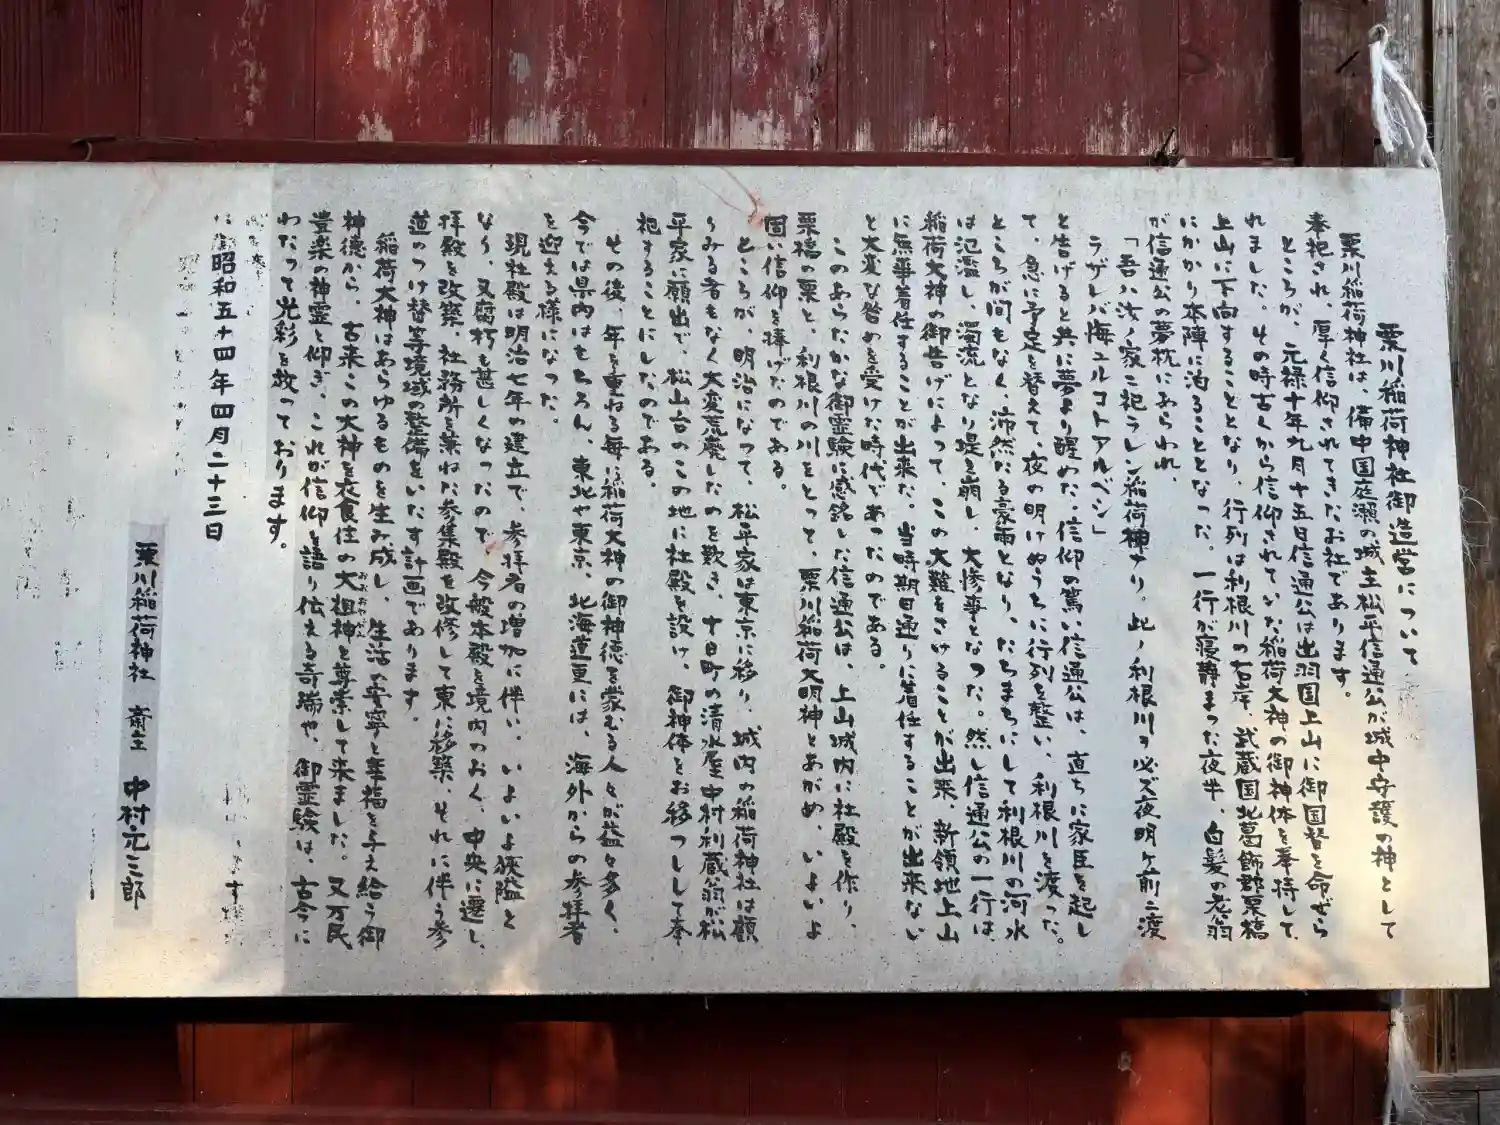 栗川稲荷神社御造営について
栗川稲荷神社は、備中国庭瀬の城主松平信通公が城中守護の神として
奉祀され、厚く信仰されてきたお社であります。
ところが、元禄十年九月十五日信通公は出羽国上山に御国替を命ぜら
れました。その時古くから信仰されていた稲荷大神の御神体を奉持して、
上山に下向することとなり、行列は利根川の右岸、武蔵国北葛飾郡栗橋
にかかり本陣に泊ることとなった。一行が寝静まった夜半、白髪の老翁
が信通公の夢枕にあらわれ、
「吾ハ汝ノ家ニ祀ラレシ稲荷神ナリ。此ノ利根川ヲ必ズ夜明ケ前ニ渡
ラザレバ悔ユルコトアルベシ」
と告げると共に夢より醒めた。信仰の篤い信通公は、直ちに家臣を起し
て、急に予定を替えて、夜の明けぬうちに行列を整い、利根川を渡った。
ところが間もなく、沛然たる豪雨となり、たちまちにして利根川の河水
は氾濫し、濁流となり堤を崩し、大惨事となった。然し信通公の一行は、
稲荷大神の御告げによって、この大難をさけることが出来、新領地上山
に無事着任することが出来た。当時期日通りに着任することが出来ない
と大変な咎めを受けた時代であったのである。
このあらたかな御霊験に感銘した信通公は、上山城内に社殿を作り、
栗橋の栗と、利根川の川をとって、栗川稲荷大明神とあがめ、いよいよ
固い信仰を捧げたのである。
ところが、明治になって、松平家は東京に移り、城内の稲荷神社は顧
りみる者もなく大変荒廃したのを歎き、十日町の清水屋中村利蔵翁が松
平家に願出で、松山台のこの地に社殿を設け、御神体をお移つしして奉
祀することにしたのである。
その後、年を重ねる毎に稲荷大神の御神徳を蒙むる人々が益々多く、
今では県内はもちろん、東北や東京、北海道更には、海外からの参拝者
を迎える様になった。
現社殿は明治七年の建立で、参拝者の増加に伴い、いよいよ狭隘と
なり、又腐朽も甚しくなったので、今般本殿を境内のおく、中央に遷し、
拝殿を改築、社務所を兼ねた参集殿を改修して東に移築、それに伴う参
道のつけ替等境域の整備をいたす計画であります。
稲荷大神はあらゆるものを生み成し、生活の安寧と幸福を与え給う御
神徳から、古来この大神を衣食住の大祖神と尊崇して来ました。又万民
豊楽の神霊と仰ぎ、これが信仰を語り伝える奇瑞や、御霊験は、古今に
わたって光彩を放っております。
昭和五十四年四月二十三日
栗川稲荷神社 斎主 中村元三郎